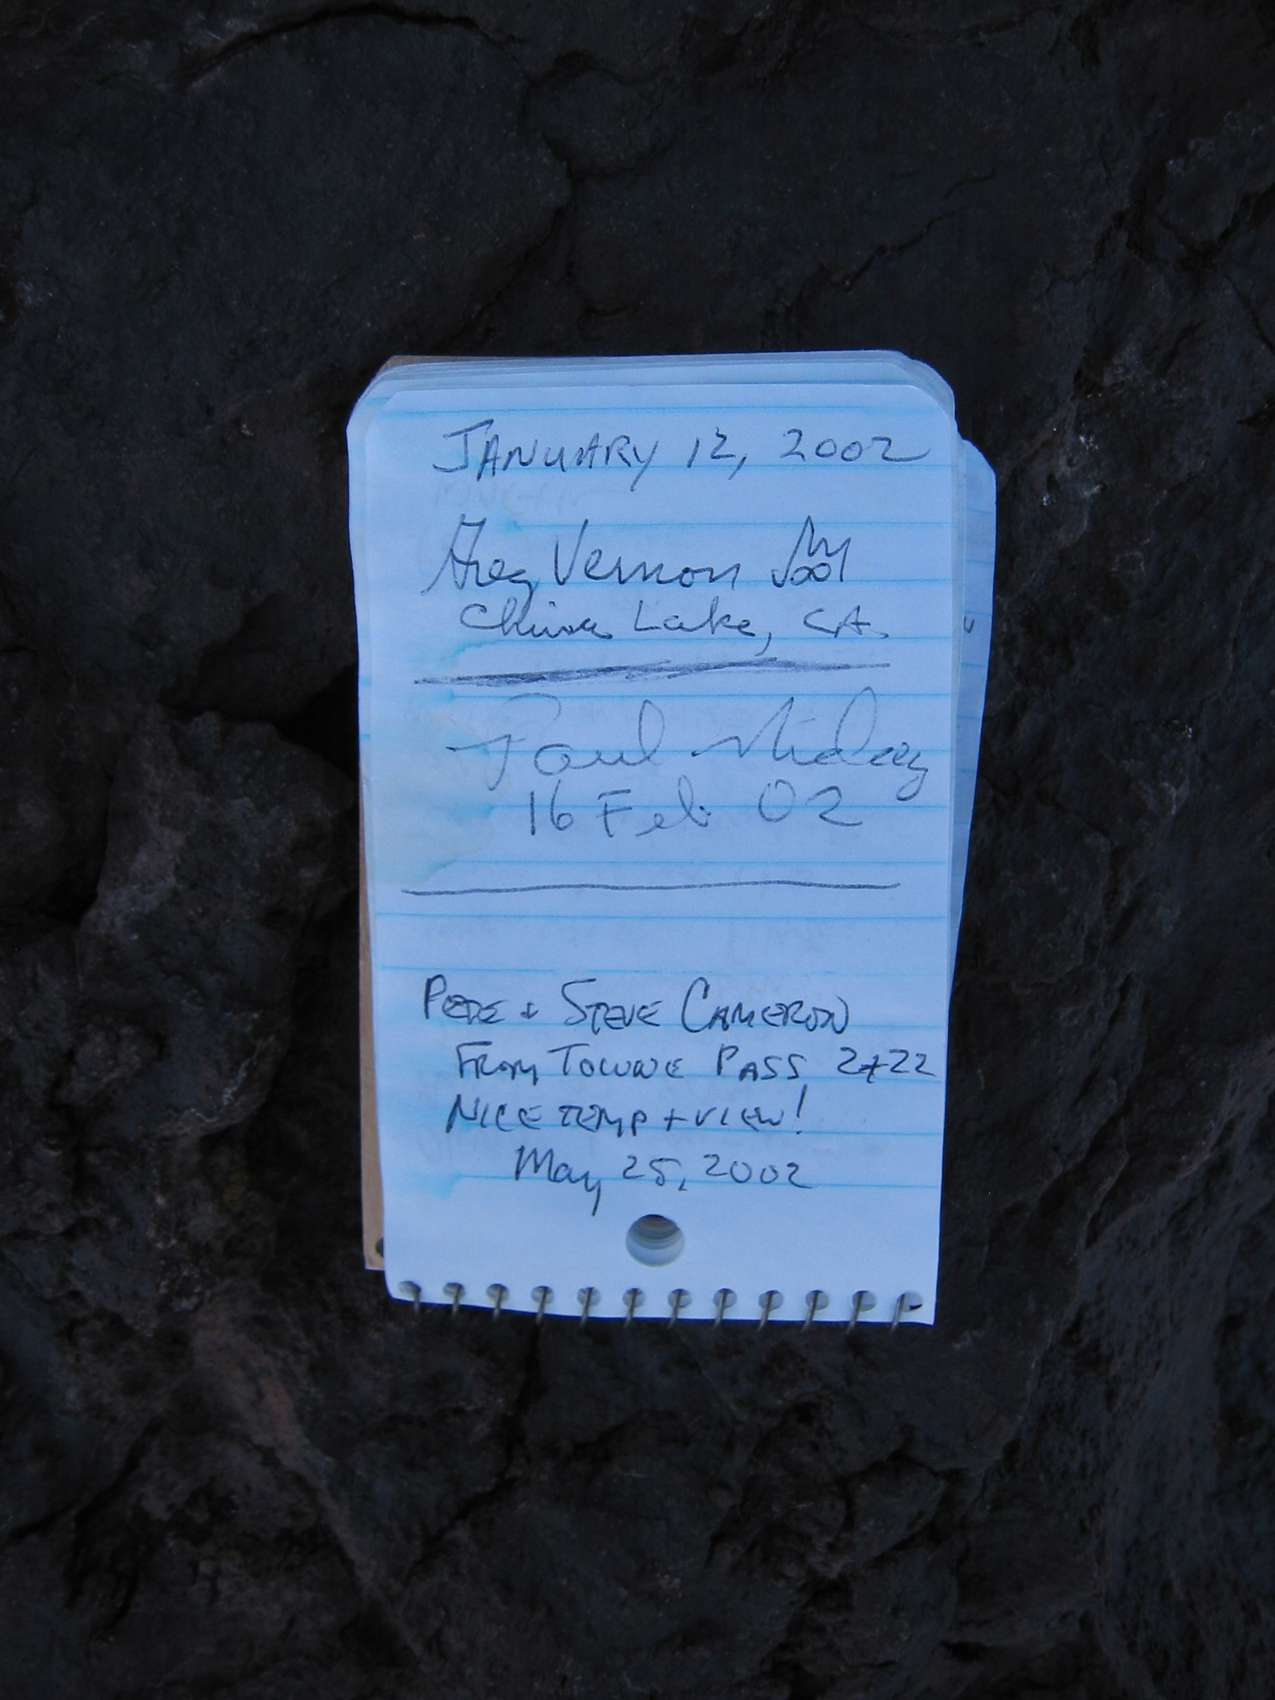 JANUARY 12, 2002
Greg Vernon
China Lake, CA.
Paul
16 Feb 02
PETE + STEVE CAMERON
FROM TOWNE PASS 2+22
NICE TEMP + VIEW!
May 25, 2002